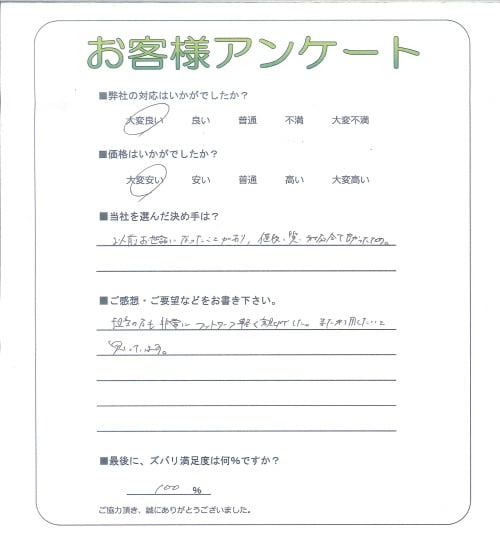 お客様アンケート
■弊社の対応はいかがでしたか?
大変良い 良い 普通 不満 大変不満
■価格はいかがでしたか?
大変安い 安い 普通 高い 大変高い
■当社を選んだ決め手は?
以前お世話になったことがあり、値段、対応全て良かったため。
■ご感想・ご要望などをお書き下さい。
担当の方も非常にフットワーク軽く親切でした。また利用したいと
思っています。
■最後に、ズバリ満足度は何%ですか?
100 %
ご協力頂き、誠にありがとうございました。